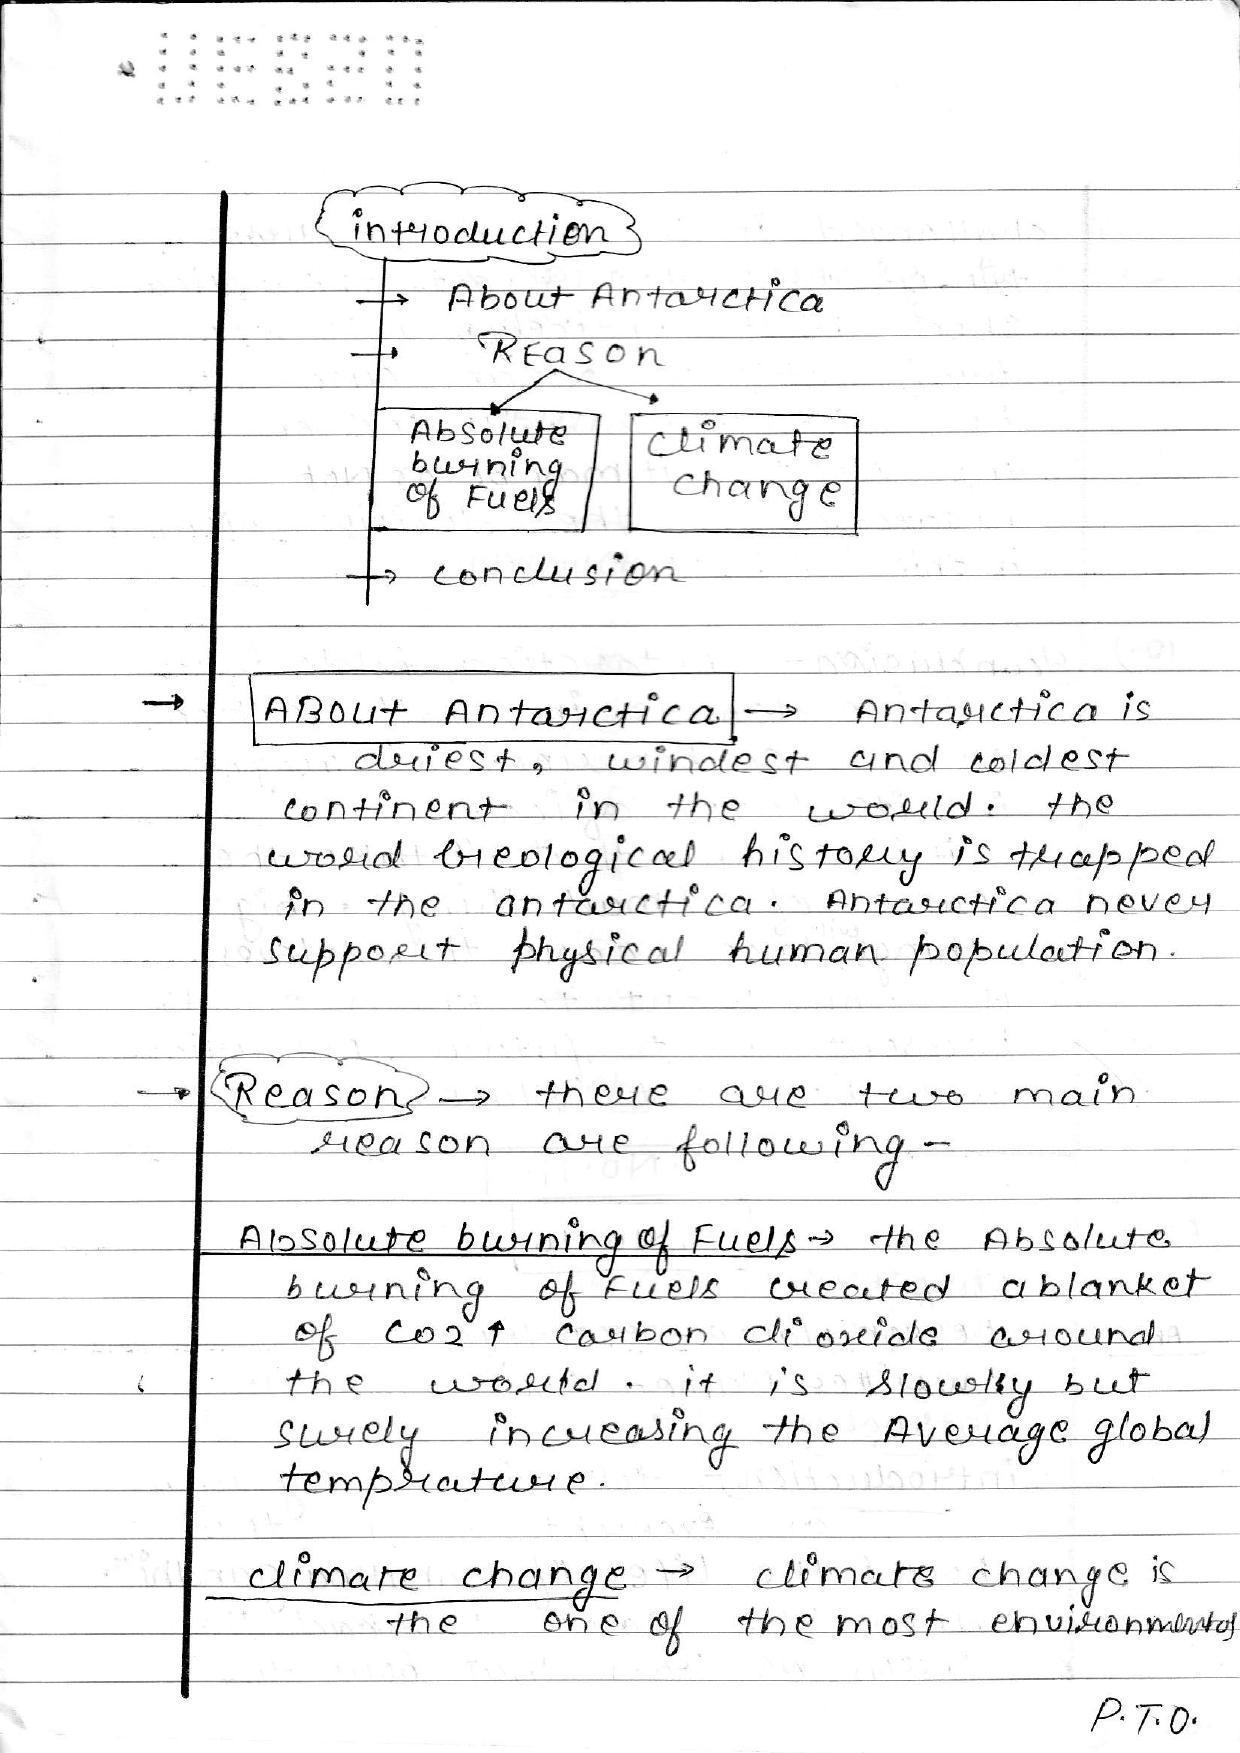 introduction
→ About Antarctica
→ Reason
Absolute burning of Fuels
climate change
→ conclusion
→ ABout Antarctica → Antarctica is
driest, windest and coldest
continent in the world. the
world Geological history is trapped
in the antarctica. Antarctica never
support physical human population.
→ Reason → there are two main
reason are following -
Absolute burning of Fuels → the Absolute
burning of Fuels created a blanket
of CO2 ↑ carbon dioxide around
the world. it is slowly but
surely increasing the Average global
temprature.
climate change → climate change is
the one of the most environmental
P.T.O.